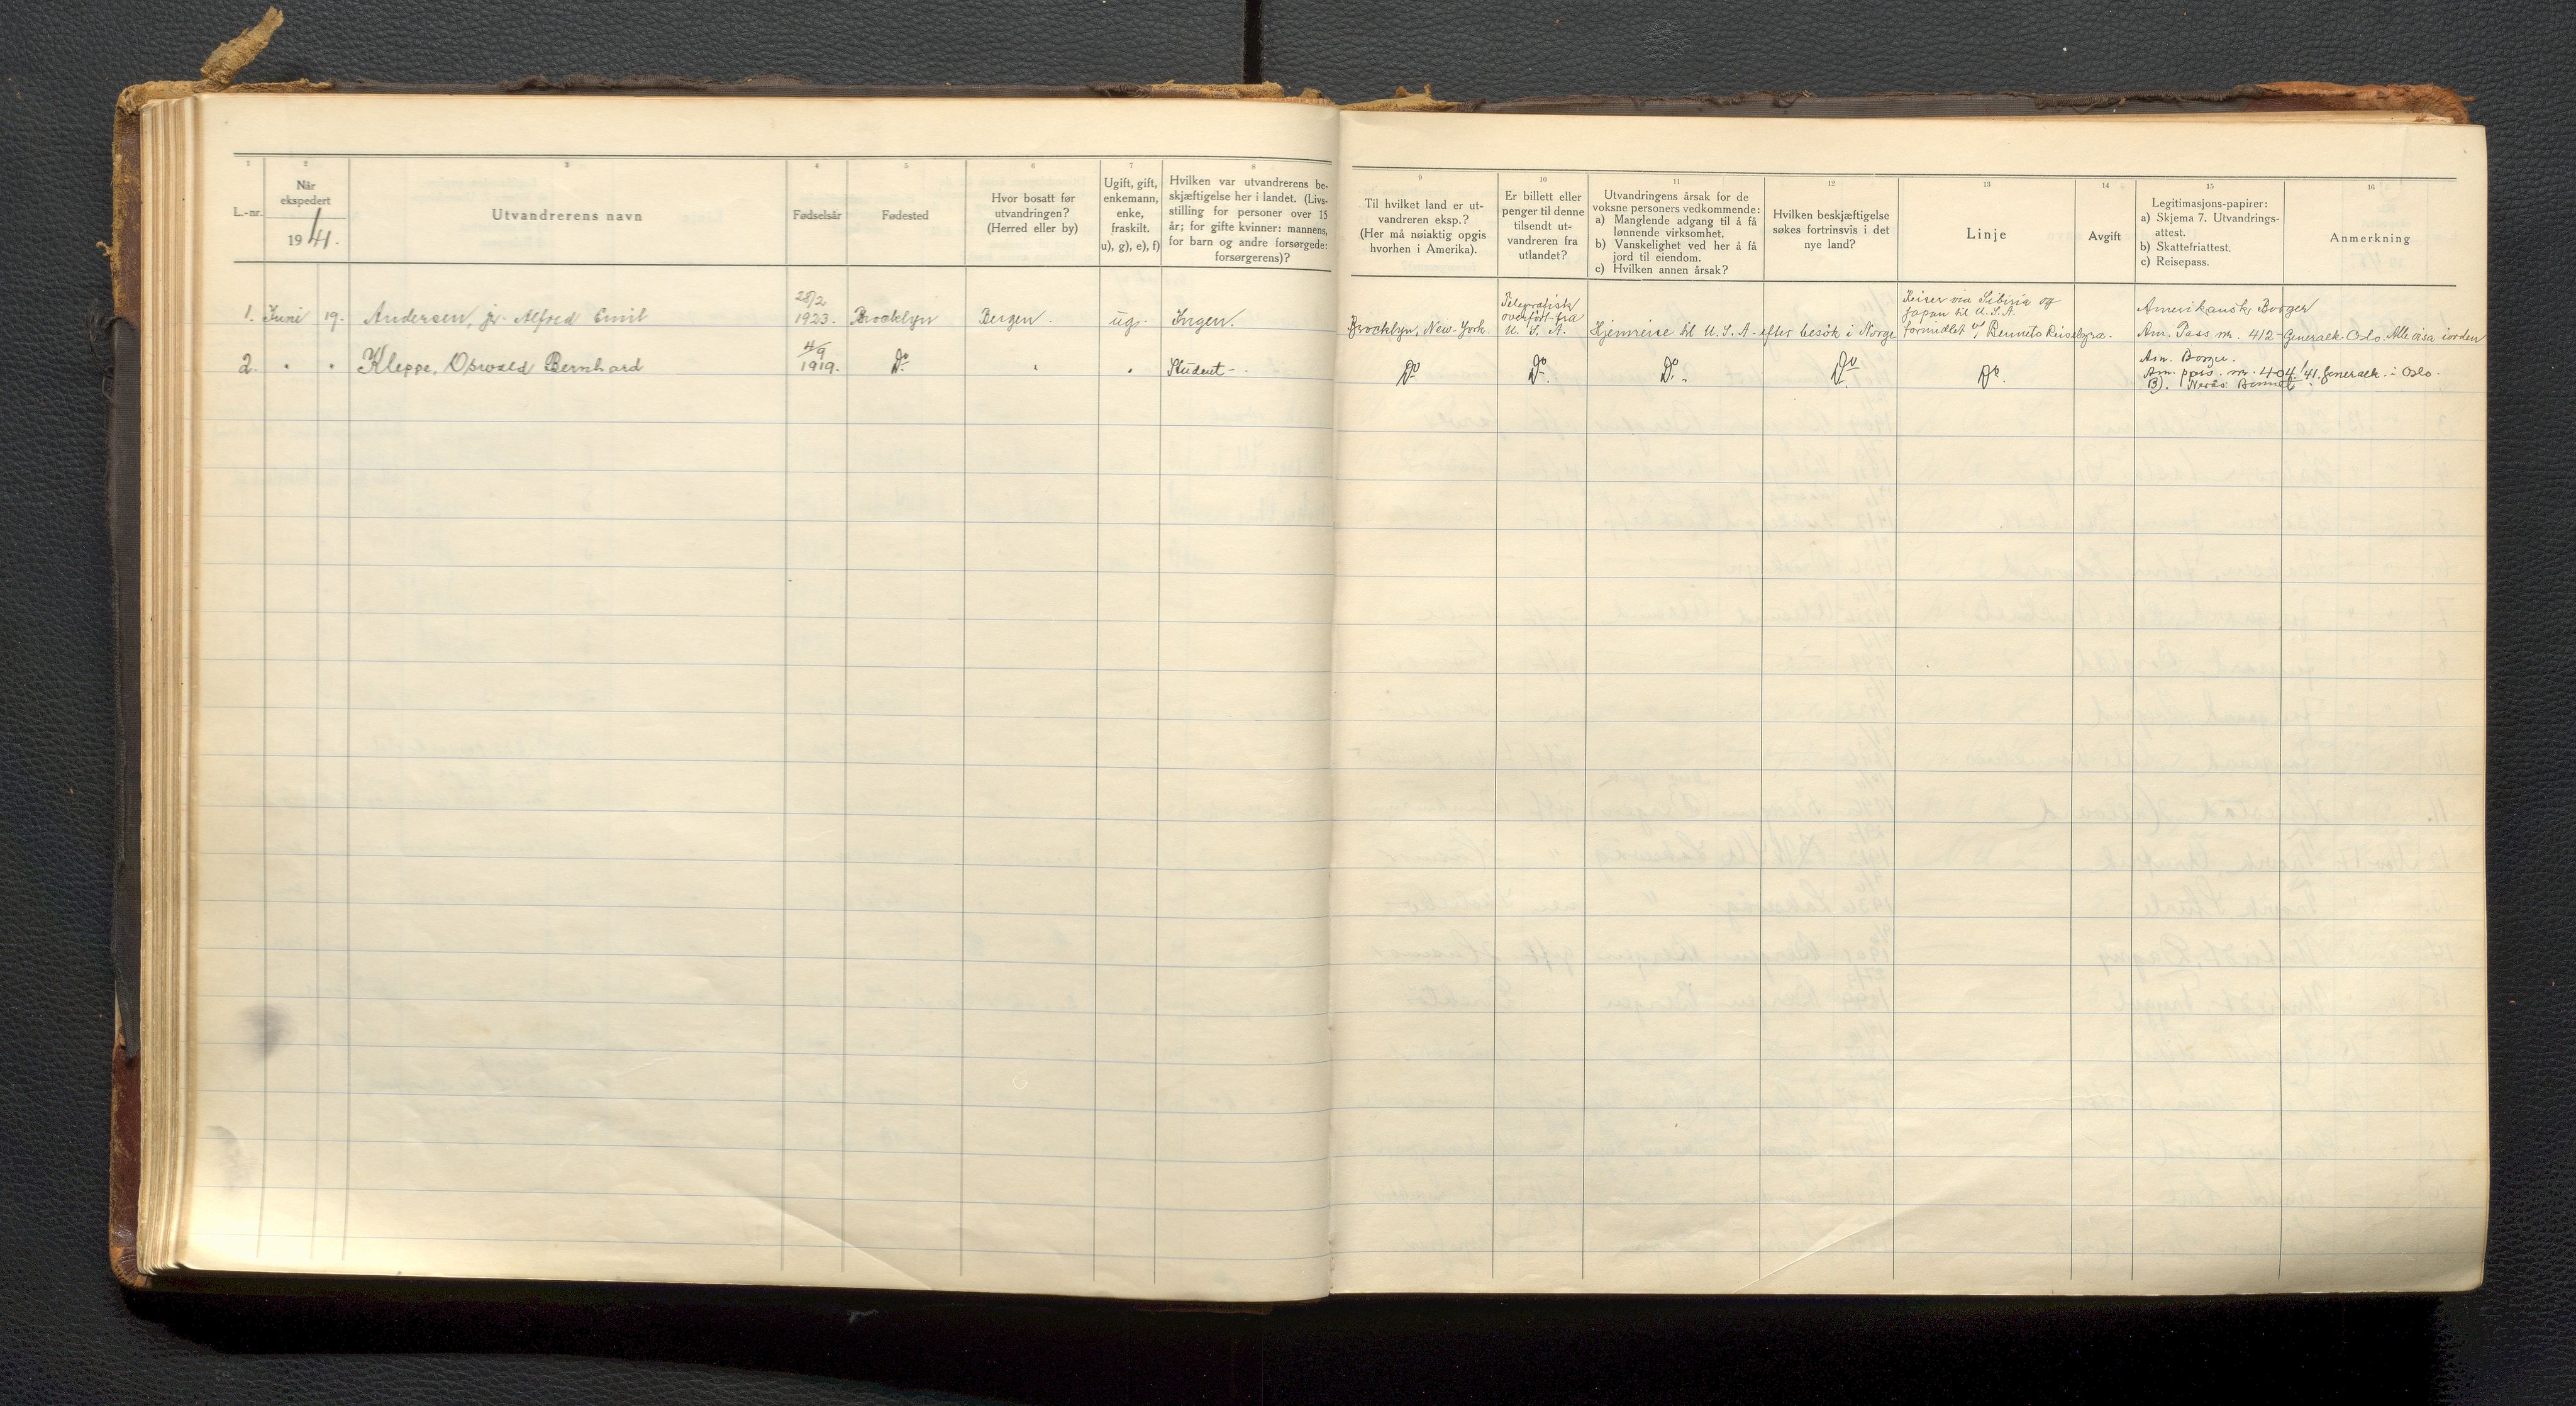 1 2 3 4 5 6 7 8
L.-nr.
Når
ekspedert
1941.
Utvandrerens navn
Fødselsår
Fødested
Hvor bosatt før
utvandringen?
(Herred eller by)
Ugift, gift,
enkemann,
enke,
fraskilt.
u), g), e), f)
Hvilken var utvandrerens be-
skjæftigelse her i landet. (Livs-
stilling for personer over 15
år; for gifte kvinner: mannens,
for barn og andre forsørgede:
forsørgerens)?
9 10 11 12 13 14 15 16
Til hvilket land er ut-
vandreren eksp.?
(Her må nøiaktig opgis
hvorhen i Amerika).
Er billett eller
penger til denne
tilsendt ut-
vandreren fra
utlandet?
Utvandringens årsak for de
voksne personers vedkommende:
a) Manglende adgang til å få
lønnende virksomhet.
b) Vanskelighet ved her å få
jord til eiendom.
c) Hvilken annen årsak?
Hvilken beskjæftigelse
søkes fortrinsvis i det
nye land?
Linje
Avgift
Legitimasjons-papirer:
a) Skjema 7. Utvandrings-
attest.
b) Skattefriattest.
c) Reisepass.
Anmerkning
1. Juni 19. Andersen, jr. Alfred Emil
28/2
1923.
Brooklyn
Bergen.
ug.
Ingen.
Brooklyn, New-York.
Telegrafisk
overført fra
U. S. A.
Hjemreise til U. S. A. efter besøk i Norge
Reiser via Sibiria og
Japan til U. S. A.
formidlet v/ Bennets Reisebyrå.
Amerikansk Borger
Am. Pass nr. 412 - Generalk. Oslo. Alle visa iorden
2. " " Kleppe, Oswald Bernhard
4/9
1919.
Do
"
"
Student -
Do
Do
Do
Do
Do
Am. Borger.
Am. pass. nr. 404/41. Generalk. i Oslo.
B). Bennet